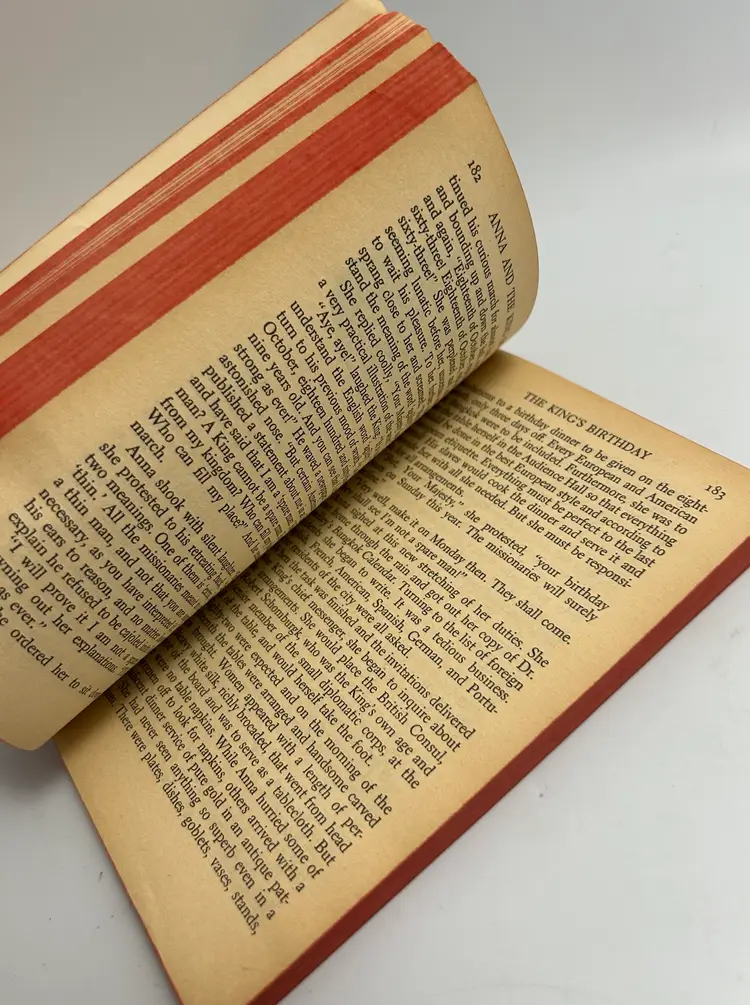 182
ANNA AND THE
tinued his curious march
and bounding up and down the
and again. "Eighteenth of October
sixty-three! Eighteenth of October
sixty-three!" She was perplexed
seeming lunatic before her
to wait his pleasure. To her
sprang close to her and
stand the meaning of the word
She replied coolly, "Your
a very practical illustration of the
"Aye, aye!" laughed the King,
understand the English word
turn to his previous mood of
October, eighteen hundred and
nine years old. And you can see
strong as ever!" He waved a
astonished nose. "But certain
published a statement about me
and have said that I am a spare man
man? A King cannot be a spare man
from my kingdom? Who can fill my
Who can fill my place?" And
march.
Anna shook with silent laughter
she protested to his retreating
two meanings. One of them
'thin.' All the missionaries meant
a thin man, and not that you
necessary, as you have interpreted
his ears to reason, and no matter
explain he refused to be cajoled
"I will prove it I am not a
wning out her explanations
as ever."
he ordered her to sit down
THE KING'S BIRTHDAY
183
to a birthday dinner to be given on the eight-
only three days off. Every European and American
were to be included. Furthermore, she was to
table herself in the Audience Hall so that everything
be done in the best European style and according to
etiquette. Everything must be perfect to the last
His slaves would cook the dinner and serve it and
her with all she needed. But she must be responsi-
arrangements.
your Majesty," she protested, "your birthday
Sunday this year. The missionaries will surely
well, make it on Monday then. They shall come.
shall see I'm not a spare man!"
sighed at this new stretching of her duties. She
through the rain and got out her copy of Dr.
Bangkok Calendar. Turning to the list of foreign
she began to write. It was a tedious business.
French, American, Spanish, German, and Portu-
residents of the city were all asked.
the task was finished and the invitations delivered
King's chief messenger, she began to inquire about
arrangements. She would place the British Consul,
Schomburgk, who was the King's own age and
member of the small diplomatic corps, at the
the table, and would herself take the foot.
were expected and on the morning of the
the tables were arranged and handsome carved
brought. Women appeared with a length of per-
white silk, richly brocaded, that went from head
of the board and was to serve as a tablecloth. But
were no table napkins. While Anna hurried some of
off to look for napkins, others arrived with a
dinner service of pure gold in an antique pat-
She had never seen anything so superb even in a
There were plates, dishes, goblets, vases, stands,